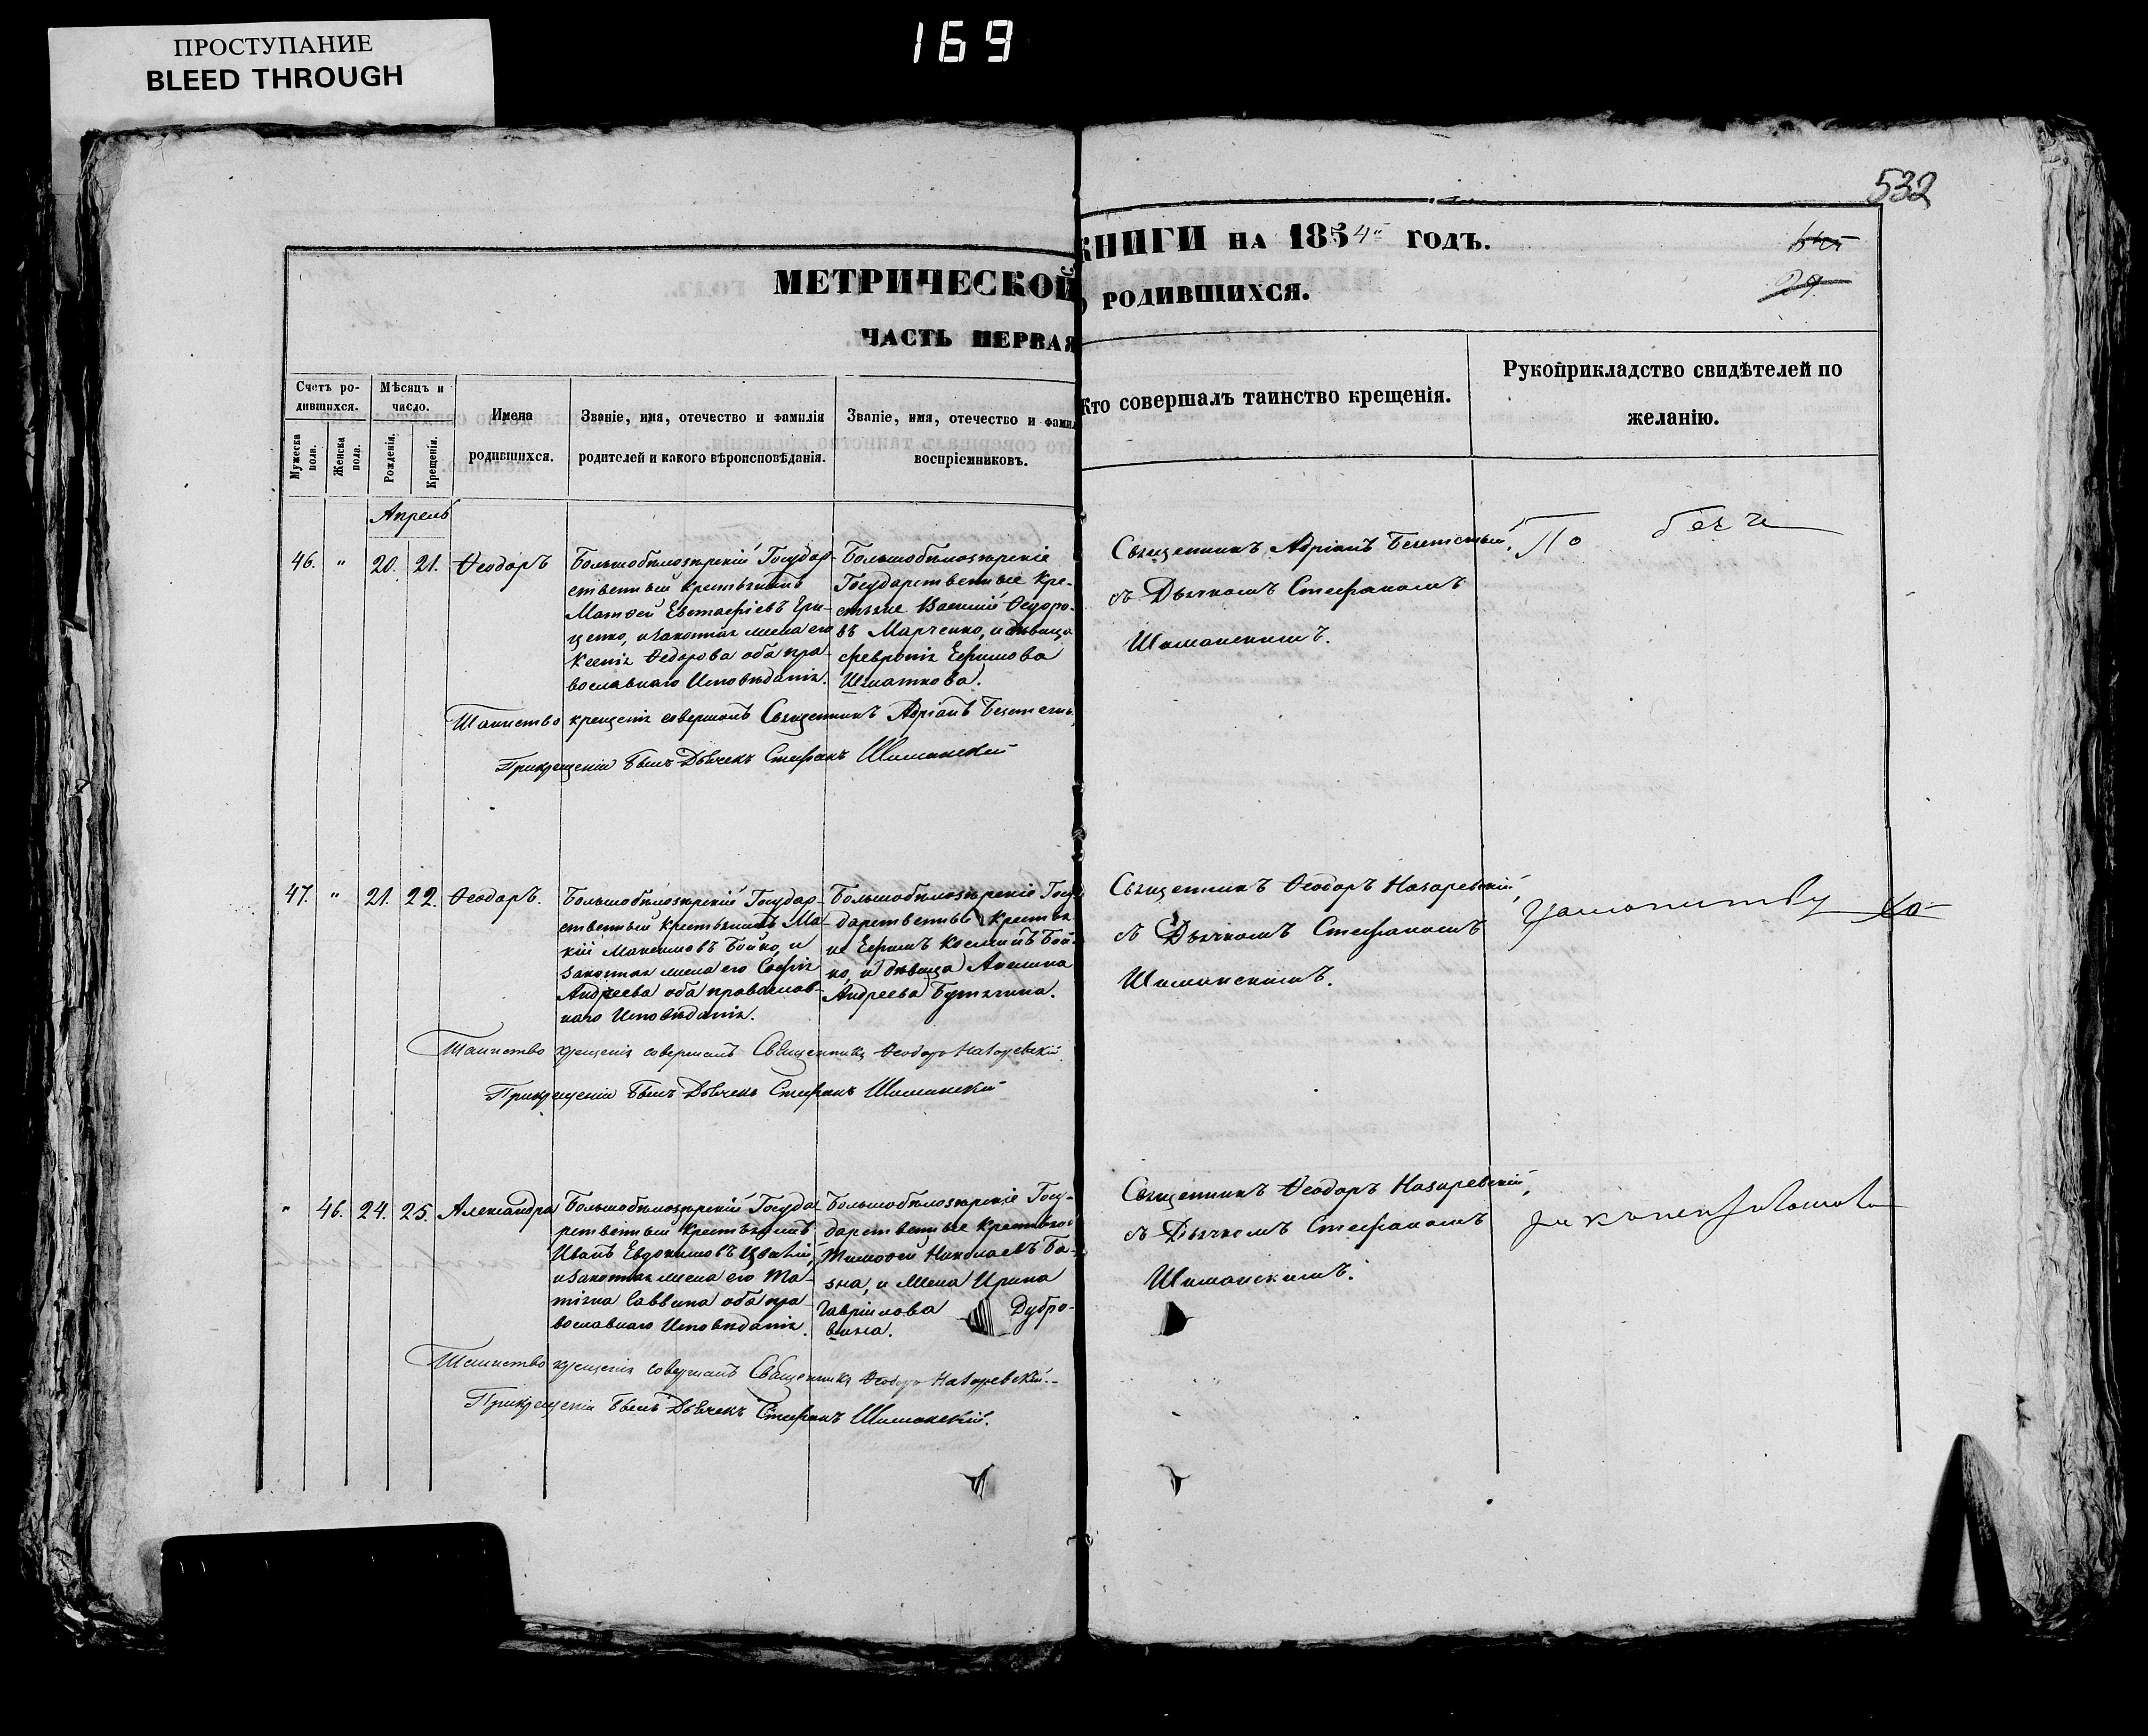 ПРОСТУПАНИЕ
BLEED THROUGH
169
532
МЕТРИЧЕСКОЙ КНИГИ НА 1854 ГОДЪ.
29
ЧАСТЬ ПЕРВАЯ О РОДИВШИХСЯ.
Счетъ ро-
дившихся.
Мужеска пола.
Женска пола.
Мѣсяцъ и
число.
Рожденія.
Крещенія.
Имена
родившихся.
Званіе, имя, отечество и фамилія
родителей и какого вѣроисповѣданія.
Званіе, имя, отечество и фамил
воспріемниковъ.
Кто совершалъ таинство крещенія.
Рукоприкладство свидѣтелей по
желанію.
Апрель
46. " 20. 21. Ѳеодоръ
Большобѣлозѣрскій Государ-
ственный крестьянинъ
Матѳей Евстафіевъ Гри-
ценко, и законная жена его
Ксенія Ѳедорова оба пра-
вославнаго Исповѣданія.
Большобѣлозѣрскіе
Государственные Кре-
стьяне Василій Ѳедоро-
въ Марченко, и дѣвица
Февронія Ефимова
Шматкова.
Священникъ Адріанъ
съ Дьячкомъ Стефаномъ
Шиманскимъ.
По
Таинство крещенія совершалъ Священникъ Адріанъ
При крещеніи былъ Дьячекъ Стефанъ Шиманскій
47. " 21. 22. Ѳеодоръ.
Большобѣлозѣрскій Государ-
ственный крестьянинъ Ма-
кій Максимовъ Бойко, и
законная жена его Софія
Андреева оба православ-
наго Исповѣданія.
Большобѣлозѣрскіе Госу-
дарственные крестья-
не Ефимъ Космин Бой-
ко, и дѣвица Акилина
Андреева
Священникъ Ѳеодоръ Назаревскій,
съ Дьячкомъ Стефаномъ
Шиманскимъ.
Таинство крещенія совершалъ Священникъ Ѳеодоръ Назаревскій
При крещеніи былъ Дьячекъ Стефанъ Шиманскій
" 46. 24. 25. Александра
Большобѣлозѣрскій Госуда-
рственный крестьянинъ
Иванъ Евдокимовъ
и законная жена его Та-
тіяна Саввина оба пра-
вославнаго Исповѣданія.
Большобѣлозѣрскіе Госу-
дарственные крестьяне
Тимоѳей Николаевъ Ба-
зна, и жена Ирина
Гавріилова Дубро-
вина.
Священникъ Ѳеодоръ Назаревскій,
съ Дьячкомъ Стефаномъ
Шиманскимъ.
Таинство крещенія совершалъ Священникъ Ѳеодоръ Назаревскій.
При крещеніи былъ Дьячекъ Стефанъ Шиманскій.